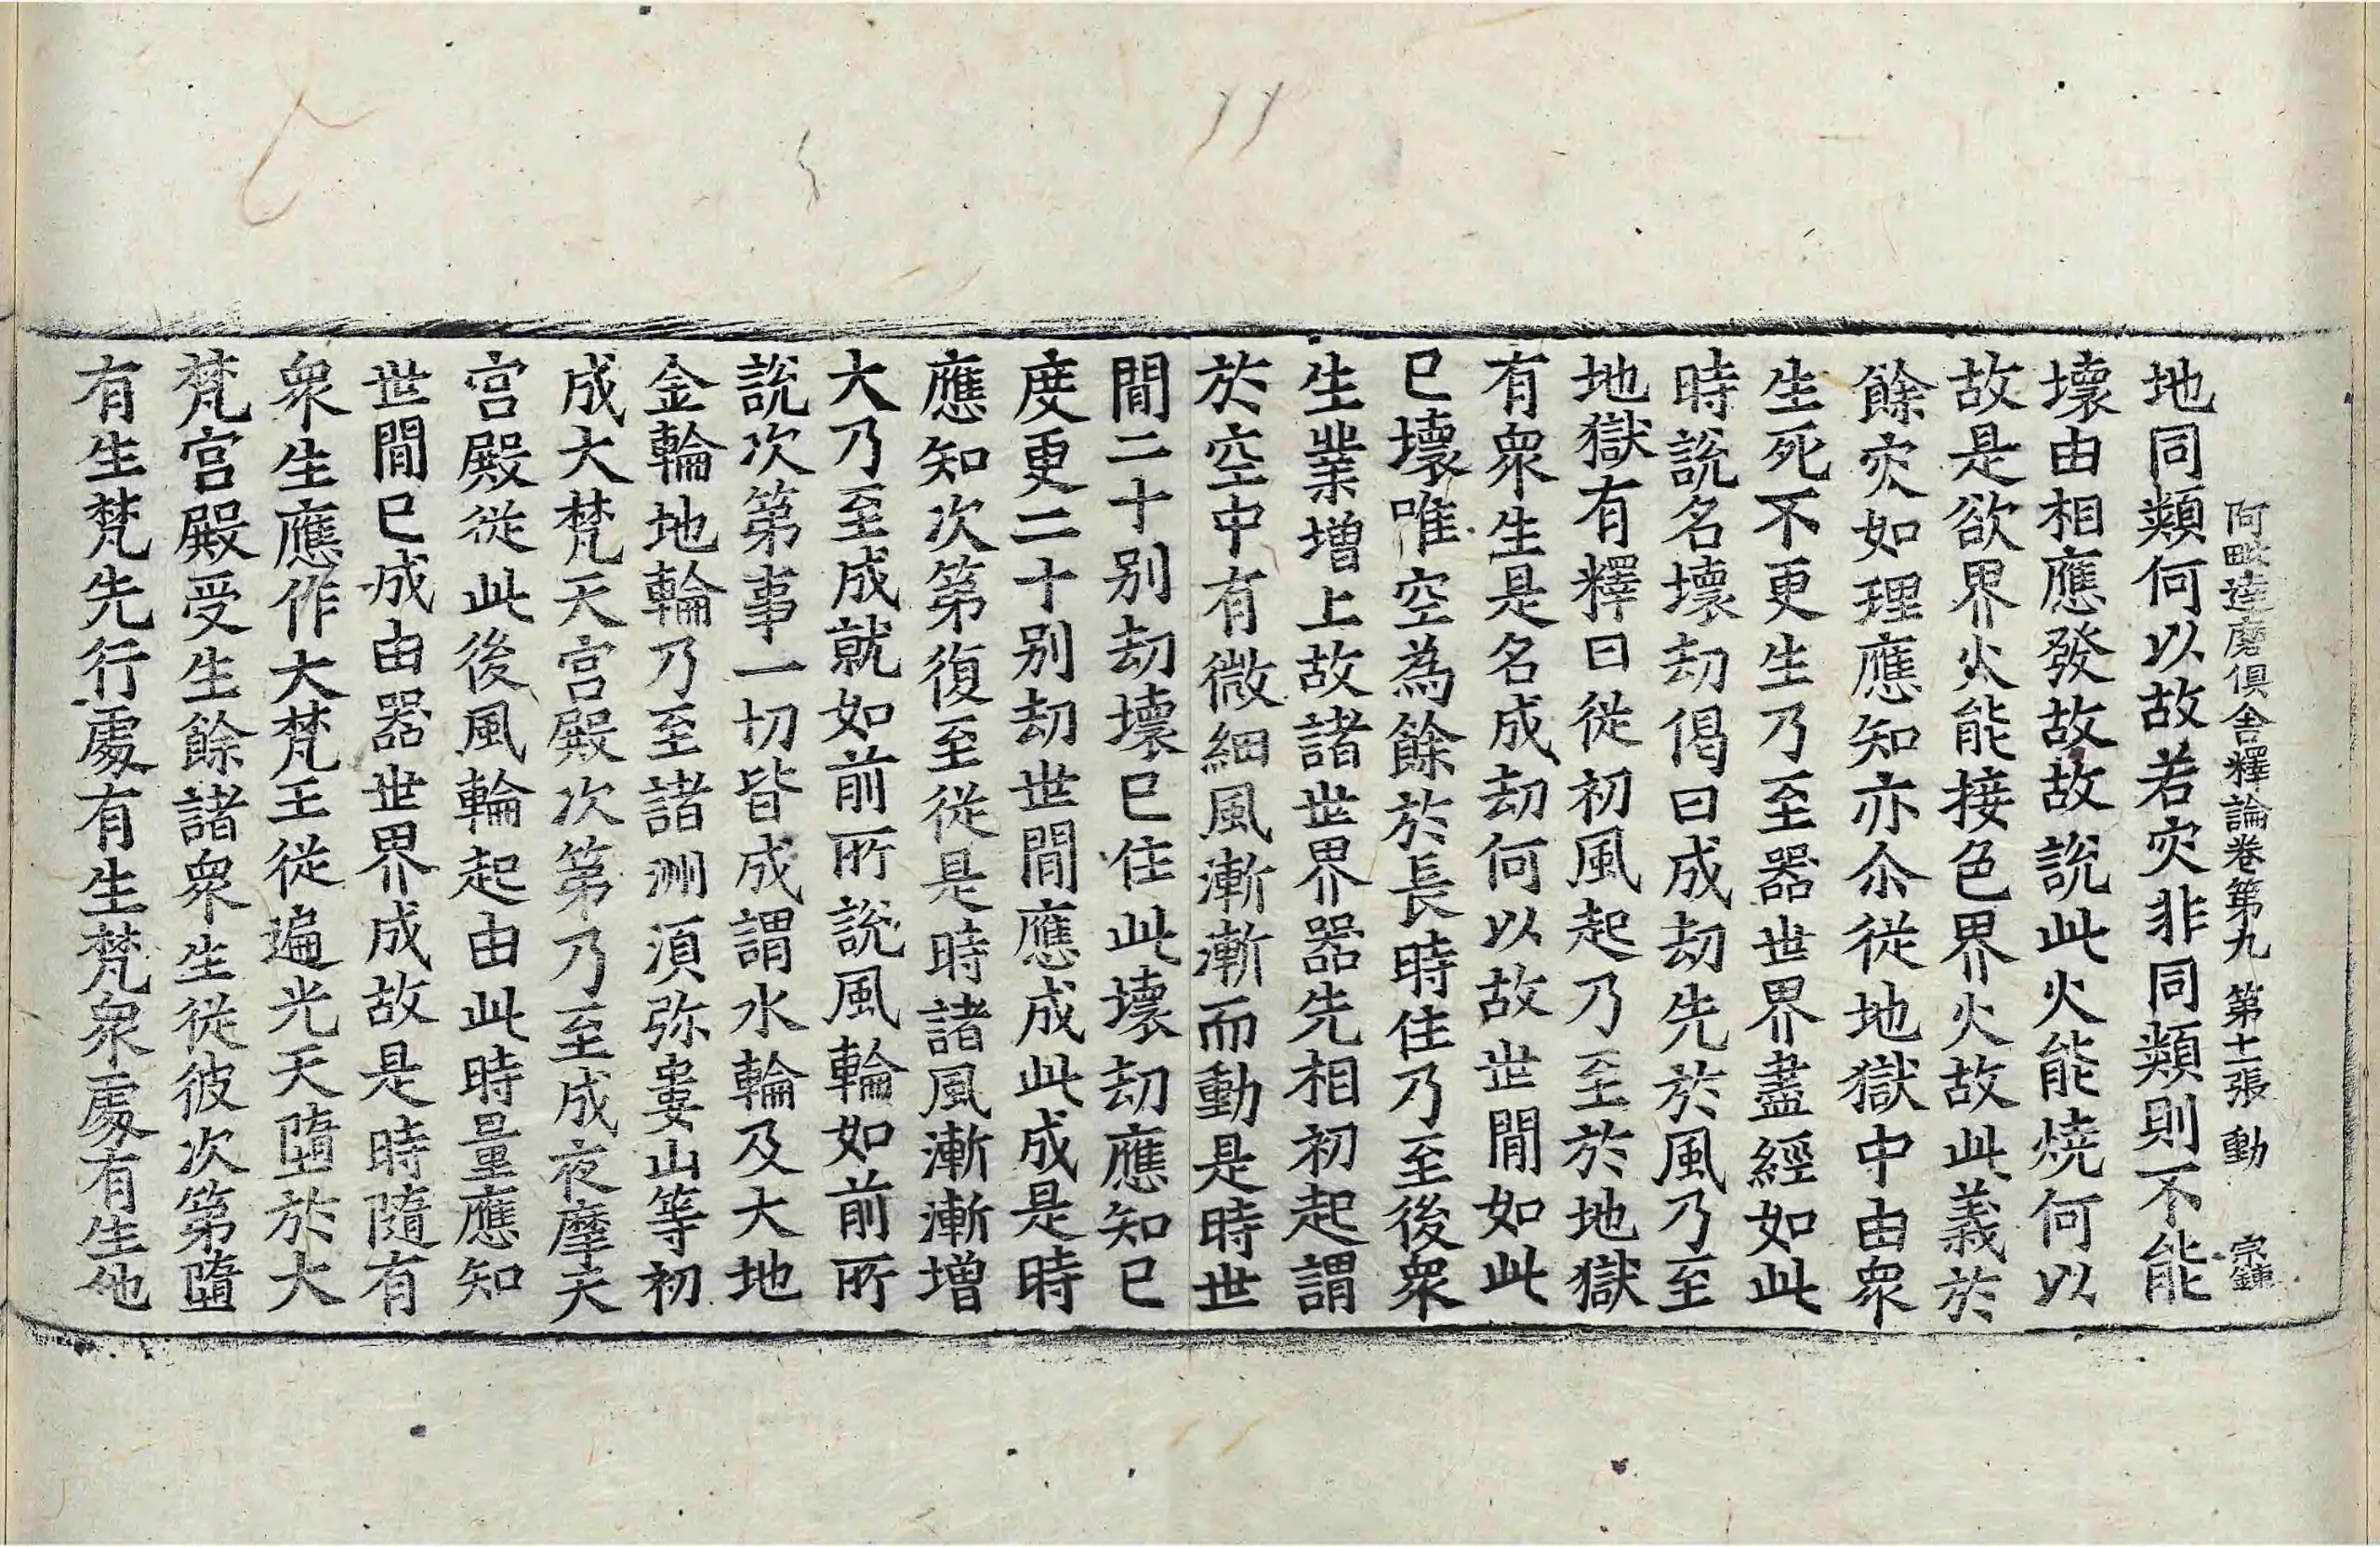 阿毗達磨俱舍釋論卷第九 第十一張 動 宗鍊
地同類何以故若灾非同類則不能
壞由相應發故故說此火能燒何以
故是欲界火能接色界火故此義於
餘灾如理應知亦尒從地獄中由衆
生死不更生乃至器世界盡經如此
時說名壞劫偈曰成劫先於風乃至
地獄有釋曰從初風起乃至於地獄
有衆生是名成劫何以故世間如此
已壞唯空為餘於長時住乃至後衆
生業增上故諸世界器先相初起謂
於空中有微細風漸漸而動是時世
間二十別劫壞已住此壞劫應知已
度更二十別劫世間應成此成是時
應知次第復至從是時諸風漸漸增
大乃至成就如前所說風輪如前所
說次第事一切皆成謂水輪及大地
金輪地輪乃至諸洲須弥婁山等初
成大梵天宮殿次第乃至成夜摩天
宮殿從此後風輪起由此時量應知
世間已成由器世界成故是時隨有
衆生應作大梵王從遍光天墮於大
梵宮殿受生餘諸衆生從彼次第墮
有生梵先行處有生梵衆處有生他